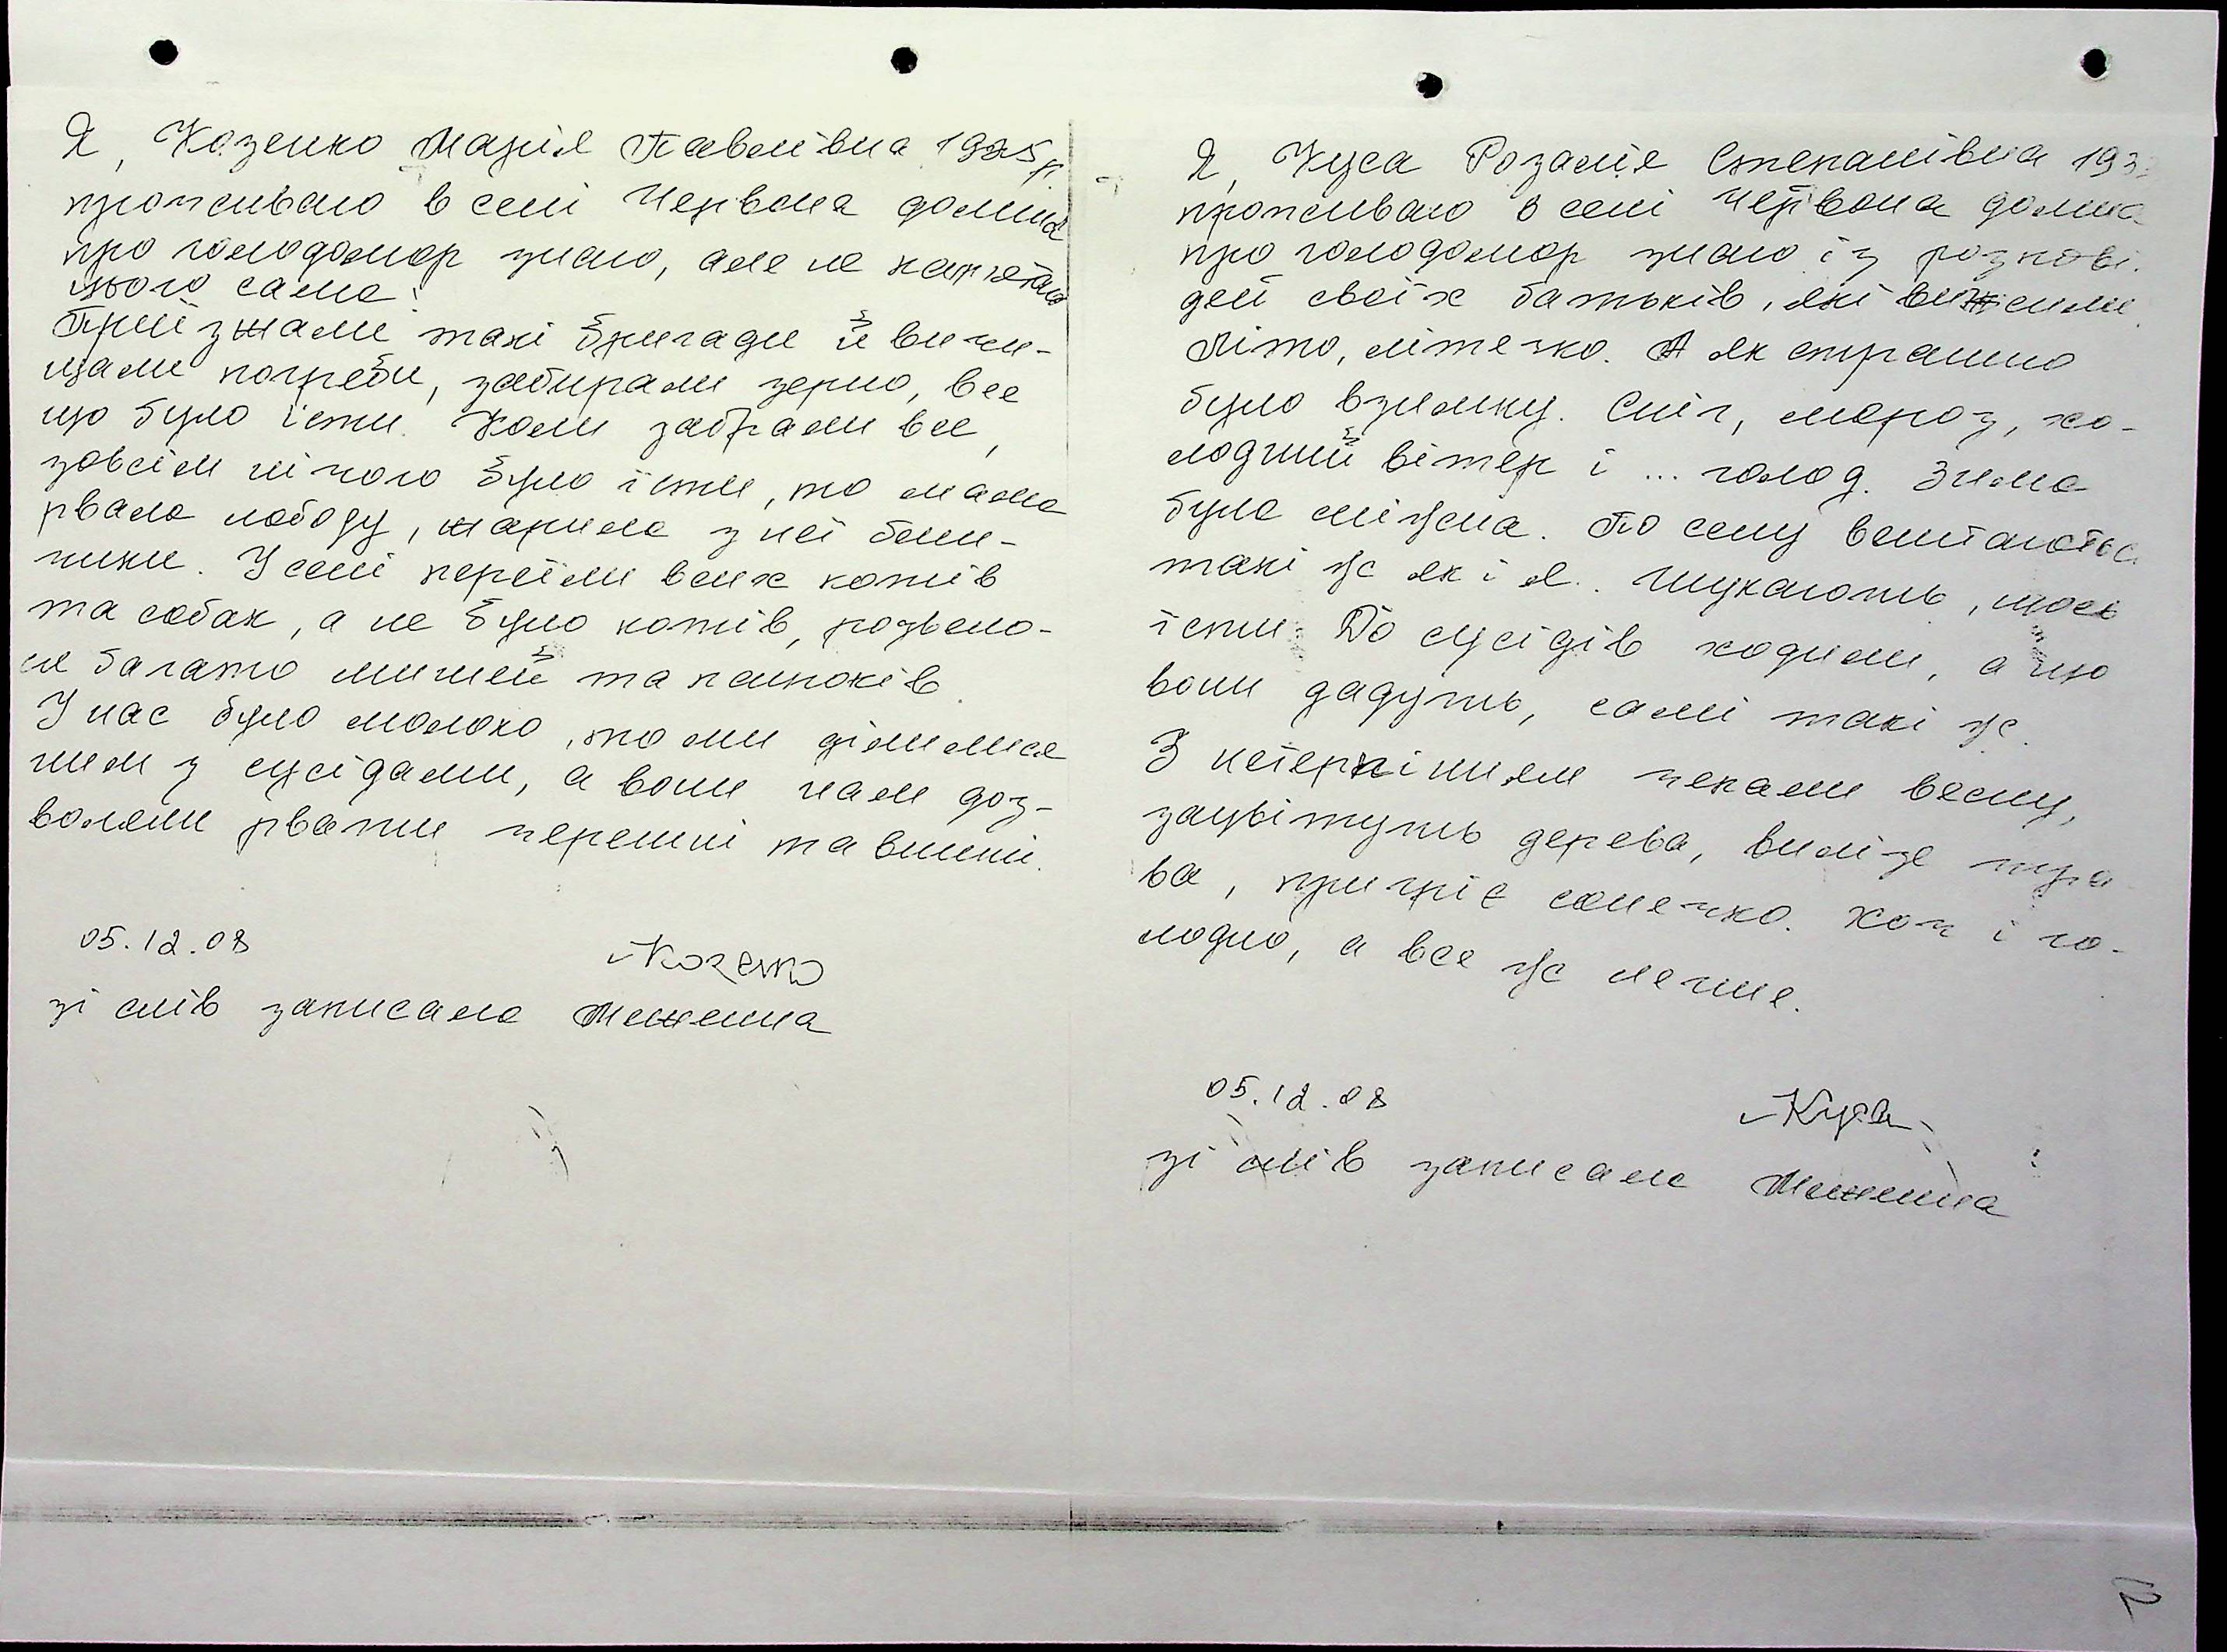 Я, Козенко Марія Павлівна 1925 р.
проживаю в селі Червона долина
про голодомор знаю, але не
цього сама.
Приїзжали такі бригади й вичи-
щали погреби, забирали зерно, все
що було їсти. Коли забрали все,
зовсім нічого було їсти, то мама
рвала лободу, жарила з неї блин-
чики. У селі переїли всих котів
та собак, а не було котів, розвело-
ся багато мишей та пацюків.
У нас було молоко, то ми ділилися
ним з сусідами, а вони нам доз-
воляли рвати черешні та вишні.
05.12.08
Козенко
зі слів записала
Я, Куса Розалія Степанівна 193
проживаю в селі Червона долина
про голодомор знаю із розпові-
дей своїх батьків, які вижили.
Літо, літечко. А як страшно
було взимку. Сніг, мороз, хо-
лодний вітер і ... голод. Зима
була сніжна. По селу вештаються
такі же як і я. Шукають, щось
їсти. До сусідів ходили, а що
вони дадуть, самі такі же.
З нетерпінням чекали весну,
зацвітуть дерева, вилізе тра
ва, пригріє сонечко. Хоч і го-
лодно, а все же легше.
05.12.08
Куса
зі слів записала
2